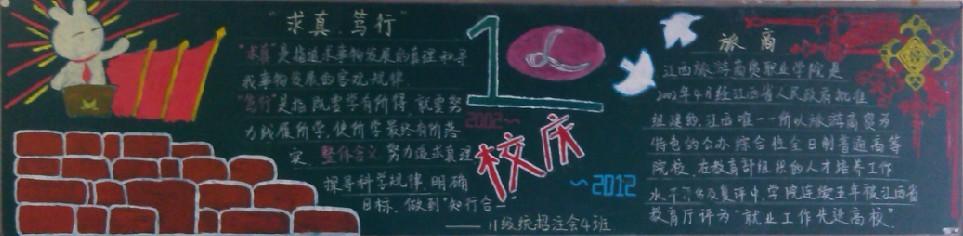 "求真,笃行"
"求真"是指追求事物发展的真理和寻
找事物发展的客观规律.
"笃行"是指既要学有所得,就要努
力践履所学,使所学最终有所落
实. 整体含义 努力追求真理
探寻科学规律,明确
目标,做到"知行合一"
——11级统招注会4班
10
2002~
校庆
~2012
旅商
江西旅游商贸职业学院是
2002年4月经江西省人民政府批准
组建的,江西唯一一所以旅游商贸为
特色的公办综合性全日制普通高等
院校,在教育部组织的人才培养工作
水平评估及复评中,学院连续五年被江西省
教育厅评为"就业工作先进高校".